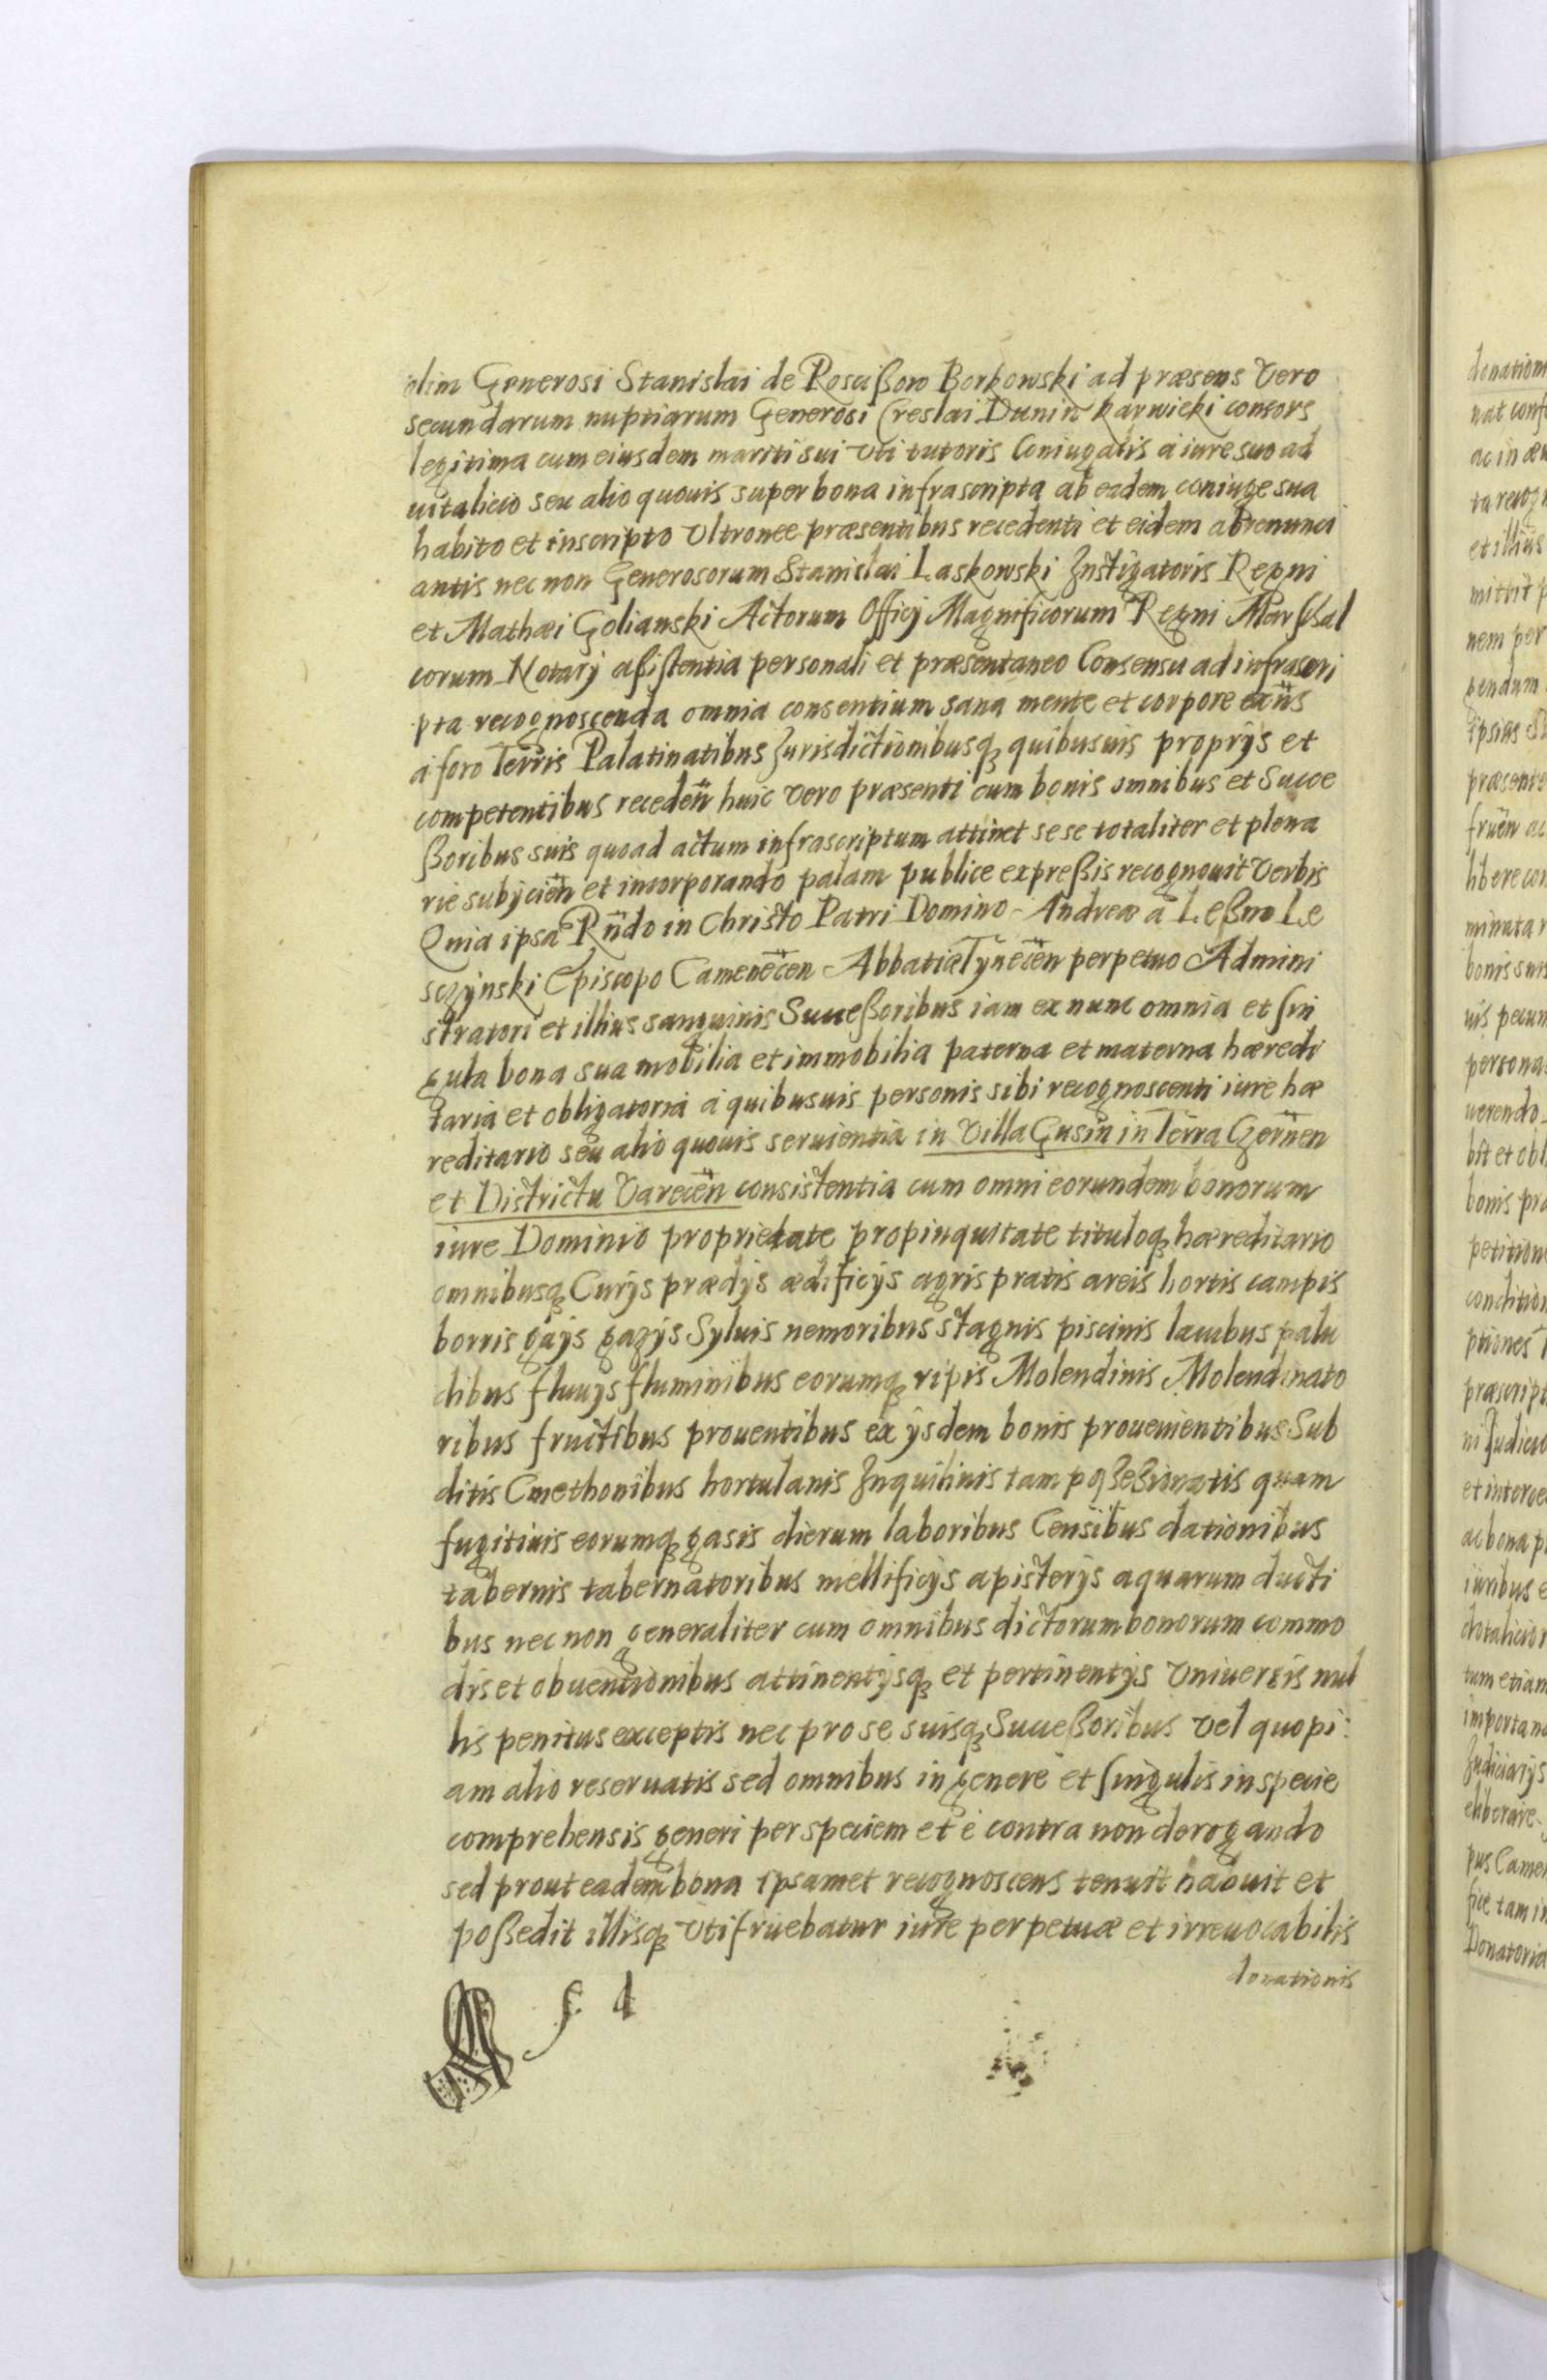 olim Generosi Stanislai de Rosciszow Borkowski ad præsens Vero
secundarum nuptiarum Generosi Creslai Dunin Karwicki consors
legitima cum eiusdem mariti sui Vti tutoris Coniugalis à iure suo ad
uitalicio seu alio quouis super bona infrascripta ab eadem coniuge sua
habito et inscripto Vltronee præsentibus recedenti et eidem abrenunci
antis nec non Generosorum Stanislai Laskowski Instigatoris Regni
et Mathæi Golianski Actorum Officij Magnificorum Regni Marschal
corum Notarij aßistentia personali et præsentaneo Consensu ad infrascri
pta recognoscenda omnia consentium sana mente et corpore exñs
à foro Terris Palatinatibus Jurisdictionibusq quibusuis proprijs et
competentibus recedeñ huic vero præsenti cum bonis omnibus et Succe
ßoribus suis quoad actum infrascriptum attinet sese totaliter et plena
rie subijcieñ et incorporando palam publice expreßis recognouit Verbis
Quia ipsa Rñdo in Christo Patri Domino Andreæ à Leßno Le
sczynski Episcopo Cameneceñ Abbatiæ Tyneceñ perpetuo Admini
stratori et illius sanguinis Succeßoribus iam ex nunc omnia et sin
gula bona sua mobilia et immobilia paterna et materna hæredi
taria et obligatoria à quibusuis personis sibi recognoscenti iure hæ
reditario seu alio quouis seruientia in Villa Gusin in Terra Czerneñ
et Districtu Vareceñ consistentia cum omni eorundem bonorum
iure Dominio proprietate propinquitate tituloq hæreditario
omnibusq Curijs prædijs ædificijs agris pratis areis hortis campis
borris gaijs gazijs Syluis nemoribus stagnis piscinis lacubus palu
dibus fluuijs fluminibus eorumq ripis Molendinis Molendinato
ribus fructibus prouentibus ex ijsdem bonis prouenientibus Sub
ditis Cmethonibus hortulanis Inquilinis tam poßeßionatis quam
fugitiuis eorumq gasis dierum laboribus Censibus dationibus
tabernis tabernatoribus mellificijs apisterijs aquarum ducti
bus nec non generaliter cum omnibus dictorum bonorum commo
dis et obuentionibus attinentijsq et pertinentijs Vniuersis nul
lis penitus exceptis nec pro se suisq Succeßoribus Vel quopi
am alio reseruatis sed omnibus in genere et singulis in specie
comprehensis generi per speciem et è contra non derogando
sed prout eadem bona ipsamet recognoscens tenuit habuit et
poßedit illisq Vti fruebatur iure perpetuæ et irreuocabilis
donationis